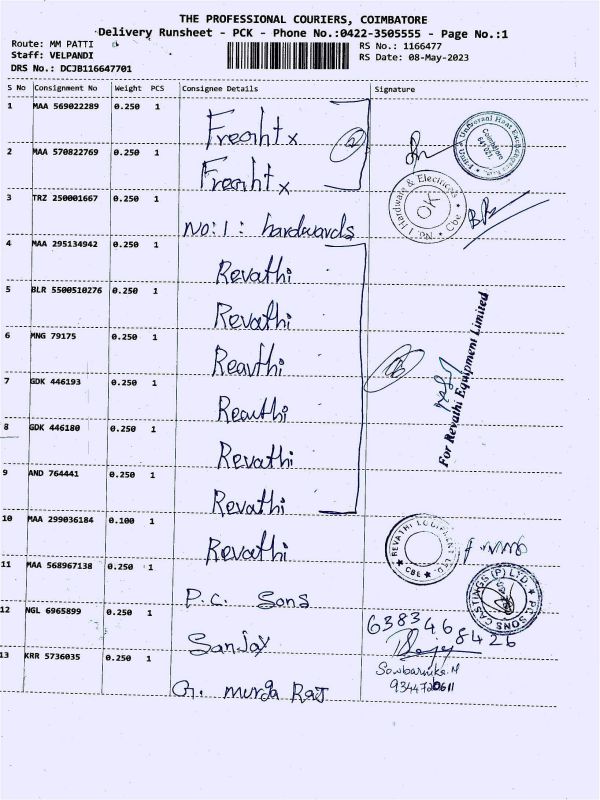 THE PROFESSIONAL COURIERS, COIMBATORE
Delivery Runsheet - PCK - Phone No.:0422-3505555 - Page No.:1
Route: MM PATTI
Staff: VELPANDI
DRS No.: DCJB116647701
RS No.: 1166477
RS Date: 08-May-2023
S No Consignment No Weight PCS Consignee Details Signature
1 MAA 569022289 0.250 1 Freaht x
2 MAA 570822769 0.250 1 Freaht x
3 TRZ 250001667 0.250 1 No:1: hardwards
4 MAA 295134942 0.250 1 Revathi
5 BLR 5500510276 0.250 1 Revathi
6 MNG 79175 0.250 1 Reavthi
7 GDK 446193 0.250 1 Reauthi
8 GDK 446180 0.250 1 Revathi
9 AND 764441 0.250 1 Revathi
10 MAA 299036184 0.100 1 Revathi
11 MAA 568967138 0.250 1 P.C. Sons
12 NGL 6965899 0.250 1 Sanjay
13 KRR 5736035 0.250 1 G. murga Raj
Universal Heat Exchangers
Coimbatore
No.1 Hardware & Electricals
Cbe
OK
For Revathi Equipment Limited
REVATHI EQUIPMENT LTD.
CBE
PC SONS CASTINGS (P) LTD.
638346 8426
Sowbarnika.M
9344720611